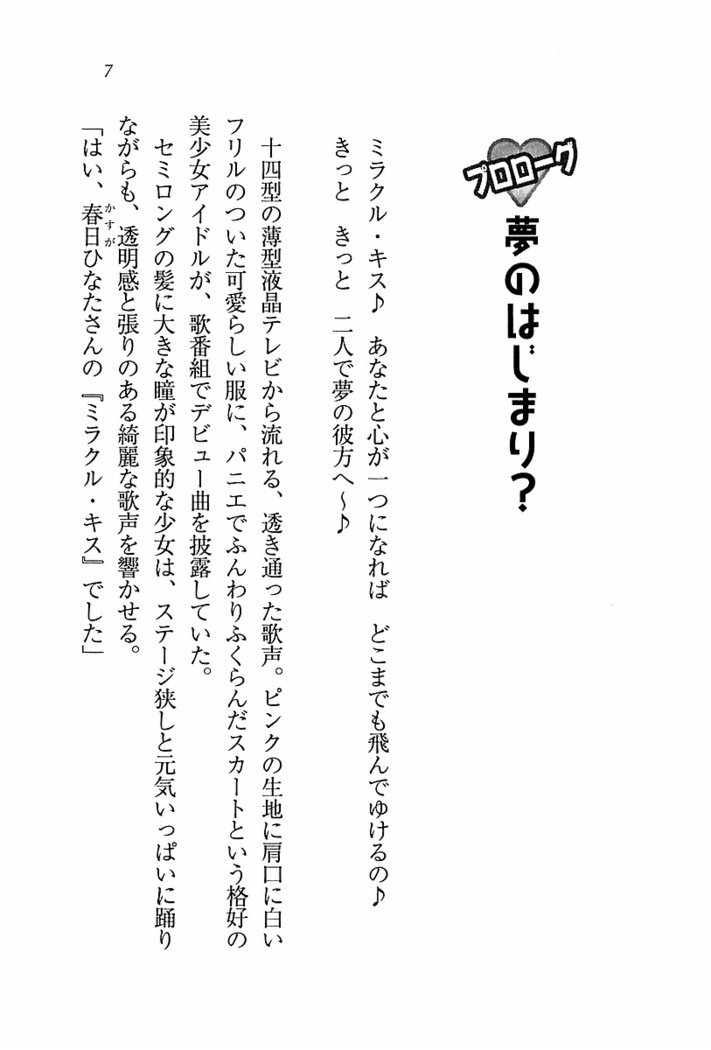 7
プロローグ
夢のはじまり？
ミラクル・キス♪　あなたと心が一つになれば　どこまでも飛んでゆけるの♪
きっと　きっと　二人で夢の彼方へ～♪
十四型の薄型液晶テレビから流れる、透き通った歌声。ピンクの生地に肩口に白い
フリルのついた可愛らしい服に、パニエでふんわりふくらんだスカートという格好の
美少女アイドルが、歌番組でデビュー曲を披露していた。
セミロングの髪に大きな瞳が印象的な少女は、ステージ狭しと元気いっぱいに踊り
ながらも、透明感と張りのある綺麗な歌声を響かせる。
「はい、春日ひなたさんの『ミラクル・キス』でした」
かすが